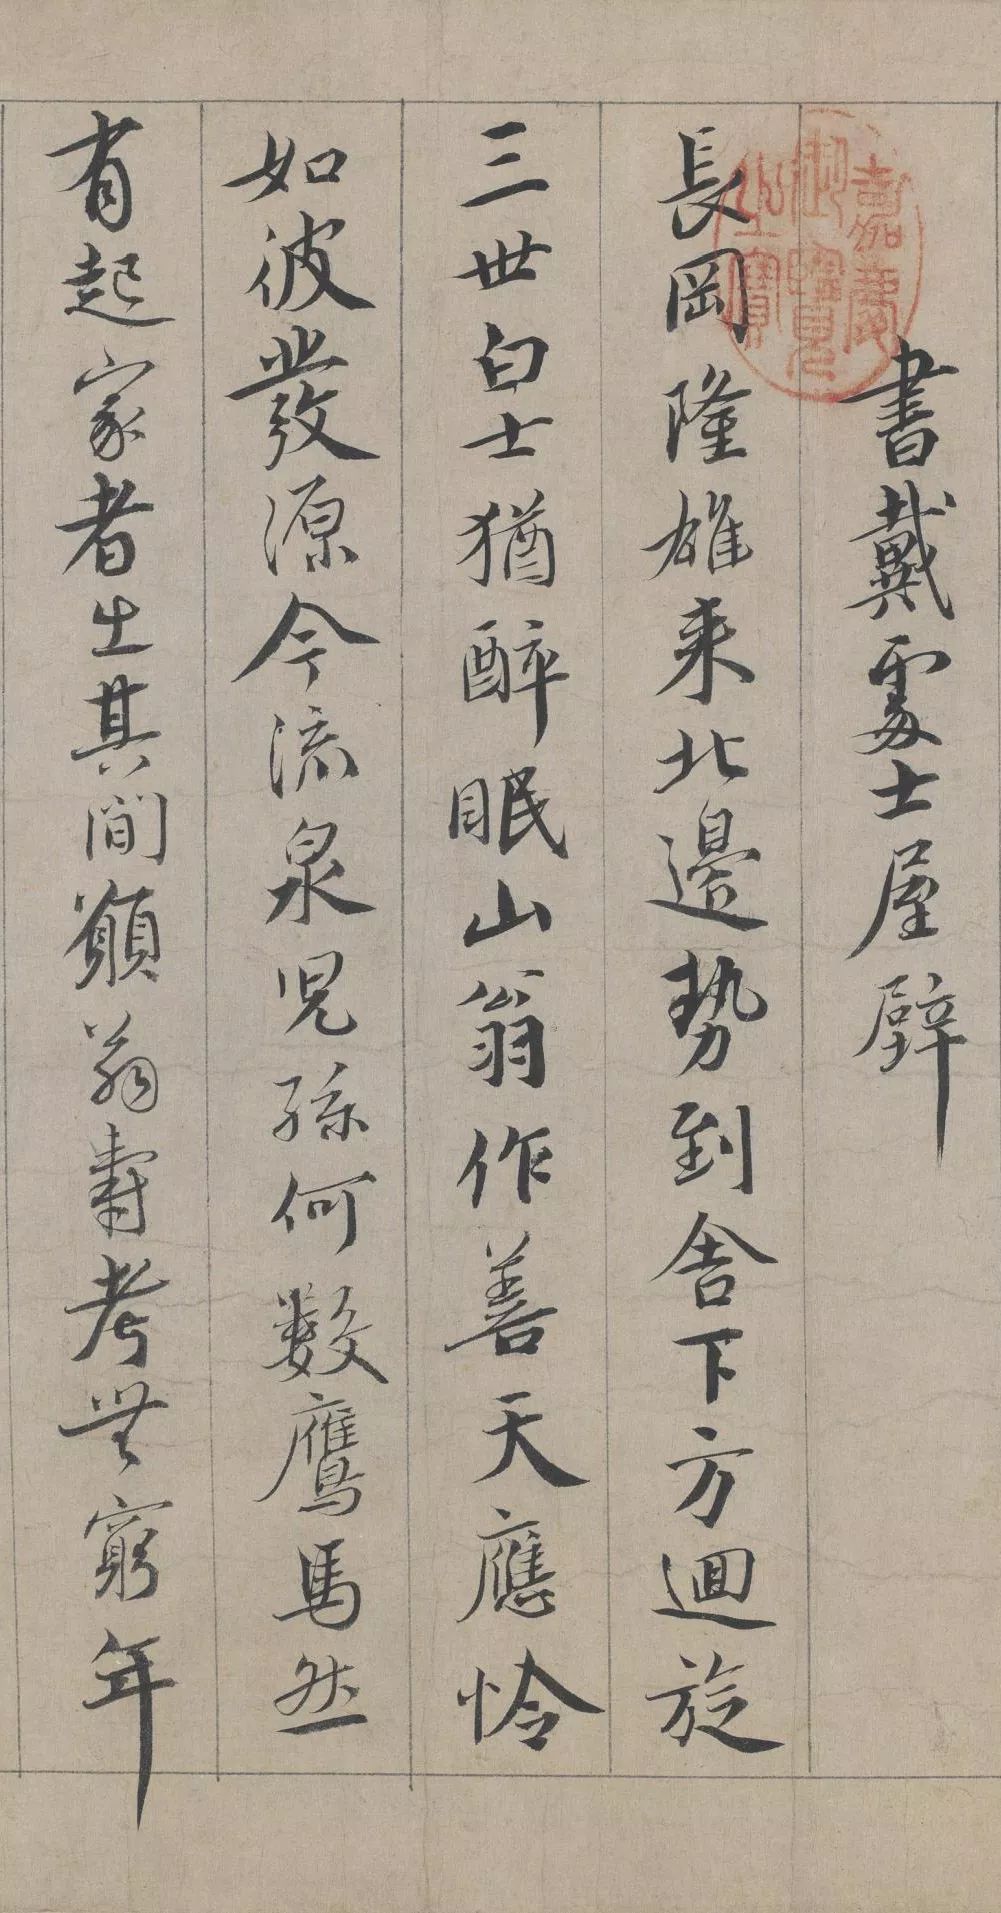 書戴處士屋壁
長岡隆雄来北邊勢到舍下方迴旋
三世白士猶醉眠山翁作善天應怜
如彼發源今流泉兒孫何數鷹馬然
有起家者生其間願翁壽考無窮年
嘉慶
御覽
之寶